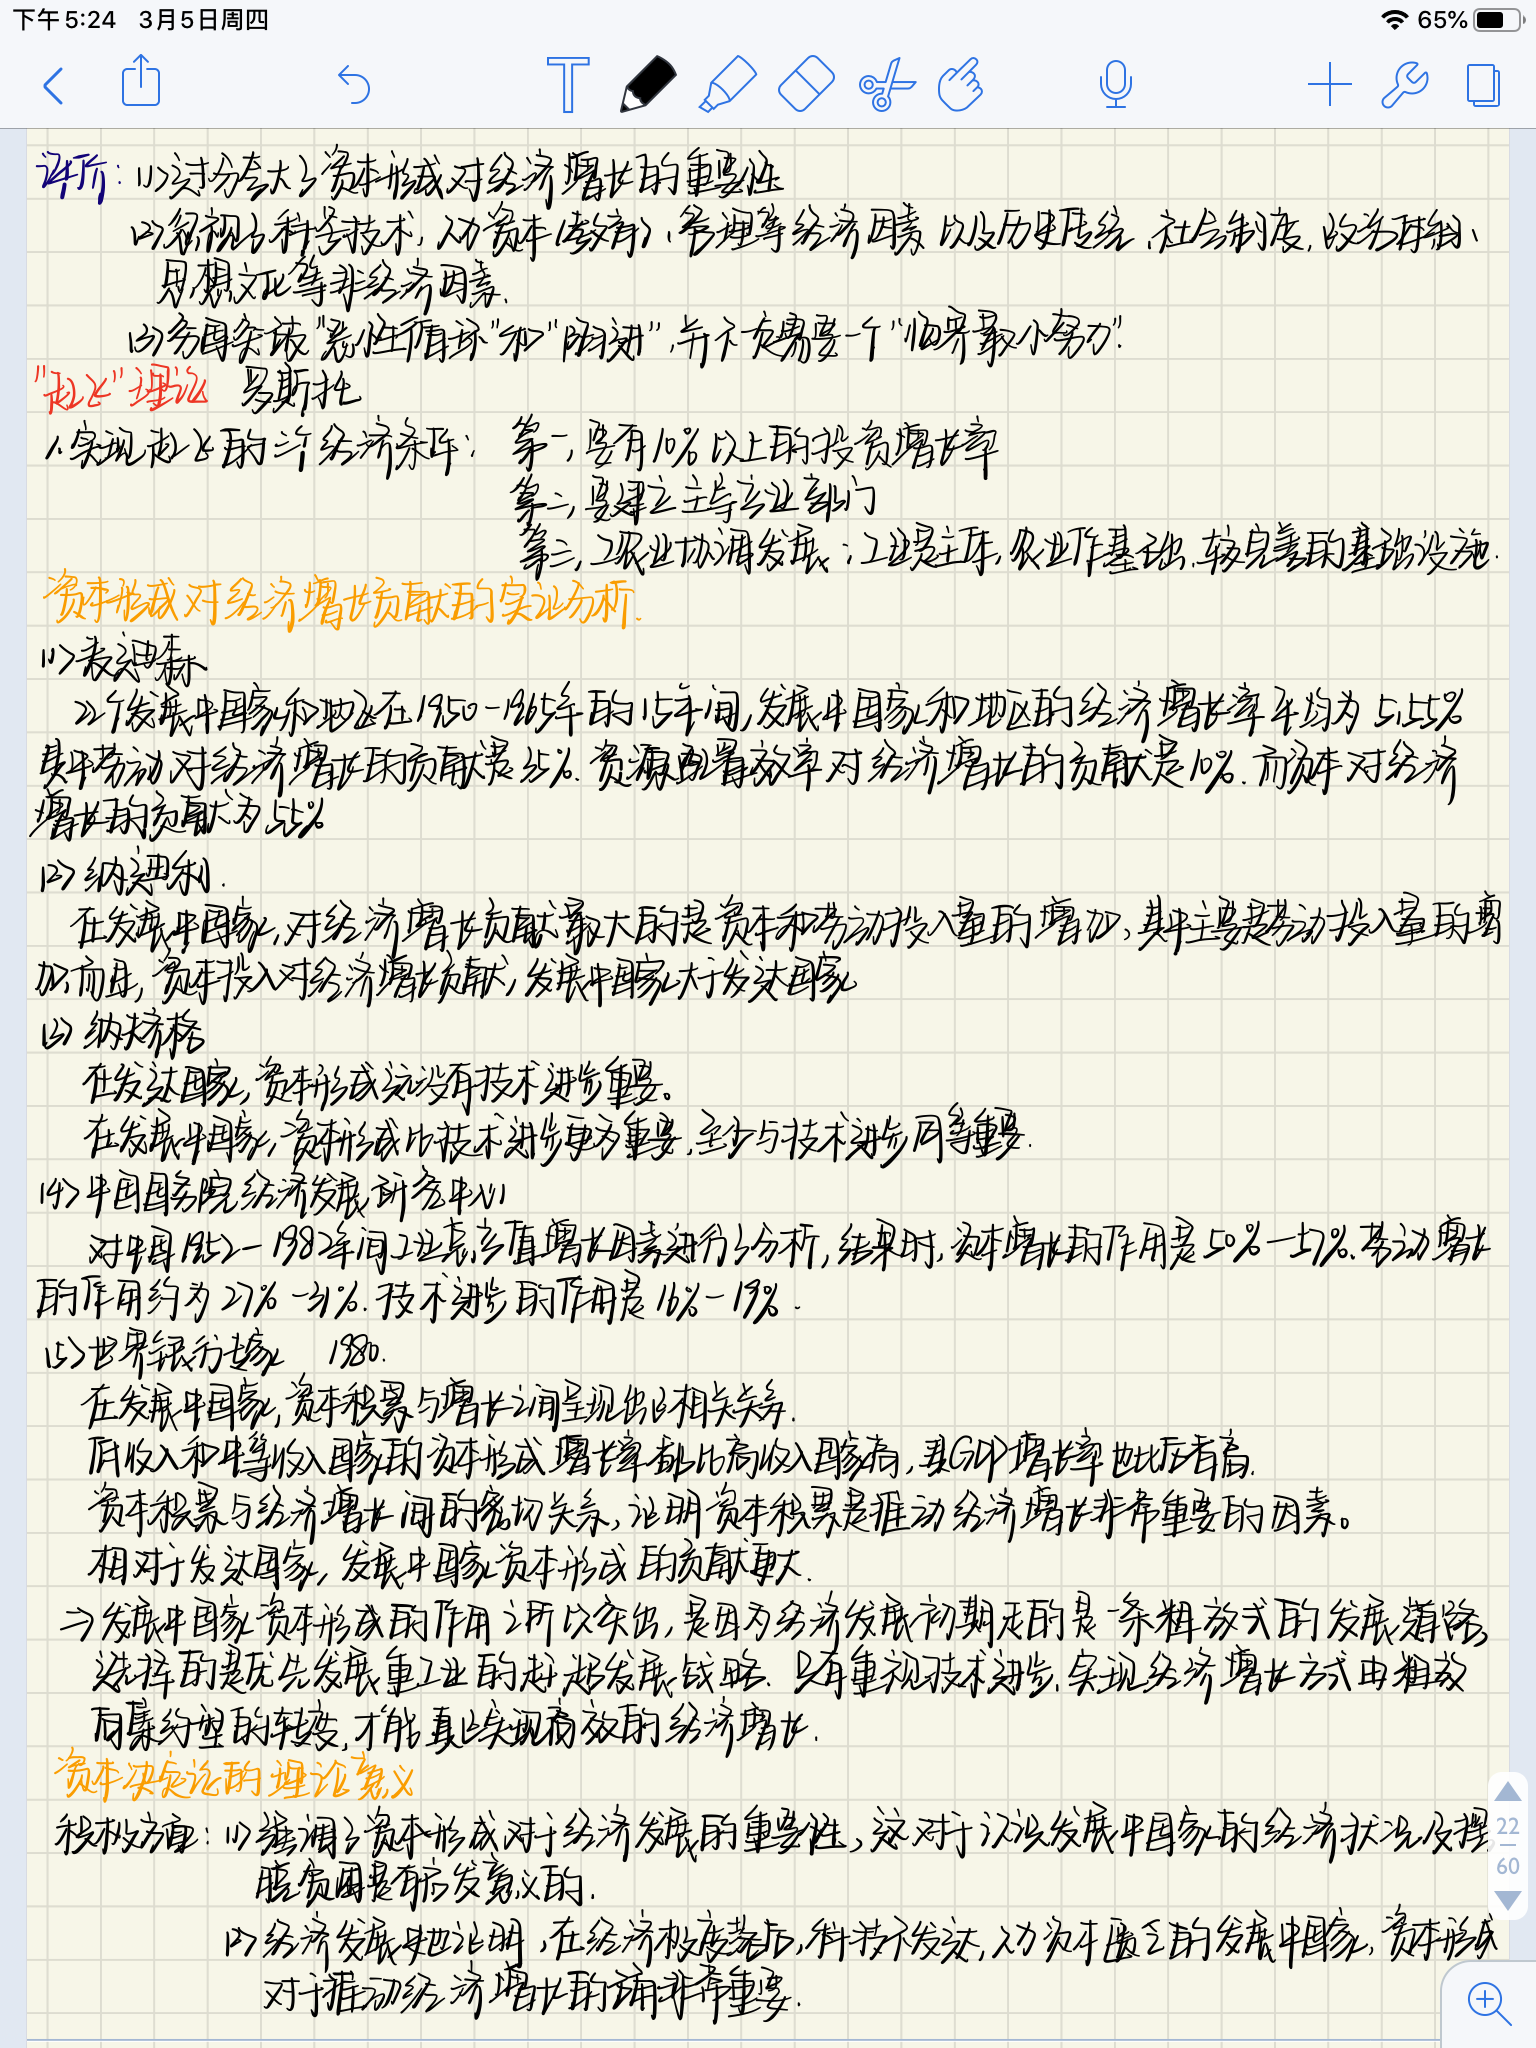 下午5:24 3月5日周四
65%
评价：(1)过分夸大了资本形成对经济增长的重要性
(2)忽视了科学技术，人力资本(教育)、管理等经济因素 以及历史传统、社会制度，政治体制、
思想文化等非经济因素.
(3)穷国突破“恶性循环”和“陷进”，并不一定需要一个“临界最小努力”.
“起飞”理论 罗斯托
1.实现起飞的三个经济条件： 第一，要有10%以上的投资增长率
第二，要建立主导产业部门
第三，工农业协调发展；工业是主体，农业作基础、较完善的基础设施.
资本形成对经济增长贡献的实证分析.
(1)麦迪森
22个发展中国家和地区在1950-1965年的15年间，发展中国家和地区的经济增长率平均为5.55%
其中劳动对经济增长的贡献是35%.资源配置效率对经济增长的贡献是10%.而资本对经济
增长的贡献为55%
(2)纳迪利.
在发展中国家，对经济增长贡献最大的是资本和劳动投入量的增加，其中主要是劳动投入量的增
加.而且，资本投入对经济增长贡献，发展中国家大于发达国家
(3)纳夫齐格
在发达国家，资本形成远没有技术进步重要。
在发展中国家，资本形成比技术进步更为重要，至少与技术进步同等重要.
(4)中国国务院经济发展研究中心
对中国1952-1982年间工业总产值增长因素进行了分析，结果时，资本增长的作用是50%-57%.劳动增长
的作用约为27%-31%.技术进步的作用是16%-19%.
(5)世界银行专家 1980.
在发展中国家，资本积累与增长之间呈现出的相关关系.
低收入和中等收入国家的资本形成增长率都比高收入国家高，其GDP增长率也比后者高.
资本积累与经济增长间的密切关系，证明资本积累是推动经济增长非常重要的因素。
相对于发达国家，发展中国家资本形成的贡献更大.
⇒发展中国家资本形成的作用之所以突出，是因为经济发展初期走的是一条粗放式的发展道路，
选择的是优先发展重工业的赶超发展战略.只有重视技术进步，实现经济增长方式由粗放
向集约型的转变，才能真正实现高效的经济增长.
资本决定论的理论意义
积极方面：(1)强调了资本形成对于经济发展的重要性，这对于认识发展中国家的经济状况及摆
脱贫困是有启发意义的.
(2)经济发展史地证明，在经济极度落后，科技不发达，人力资本匮乏的发展中国家，资本形成
对于推动经济增长的作用非常重要.
22
60